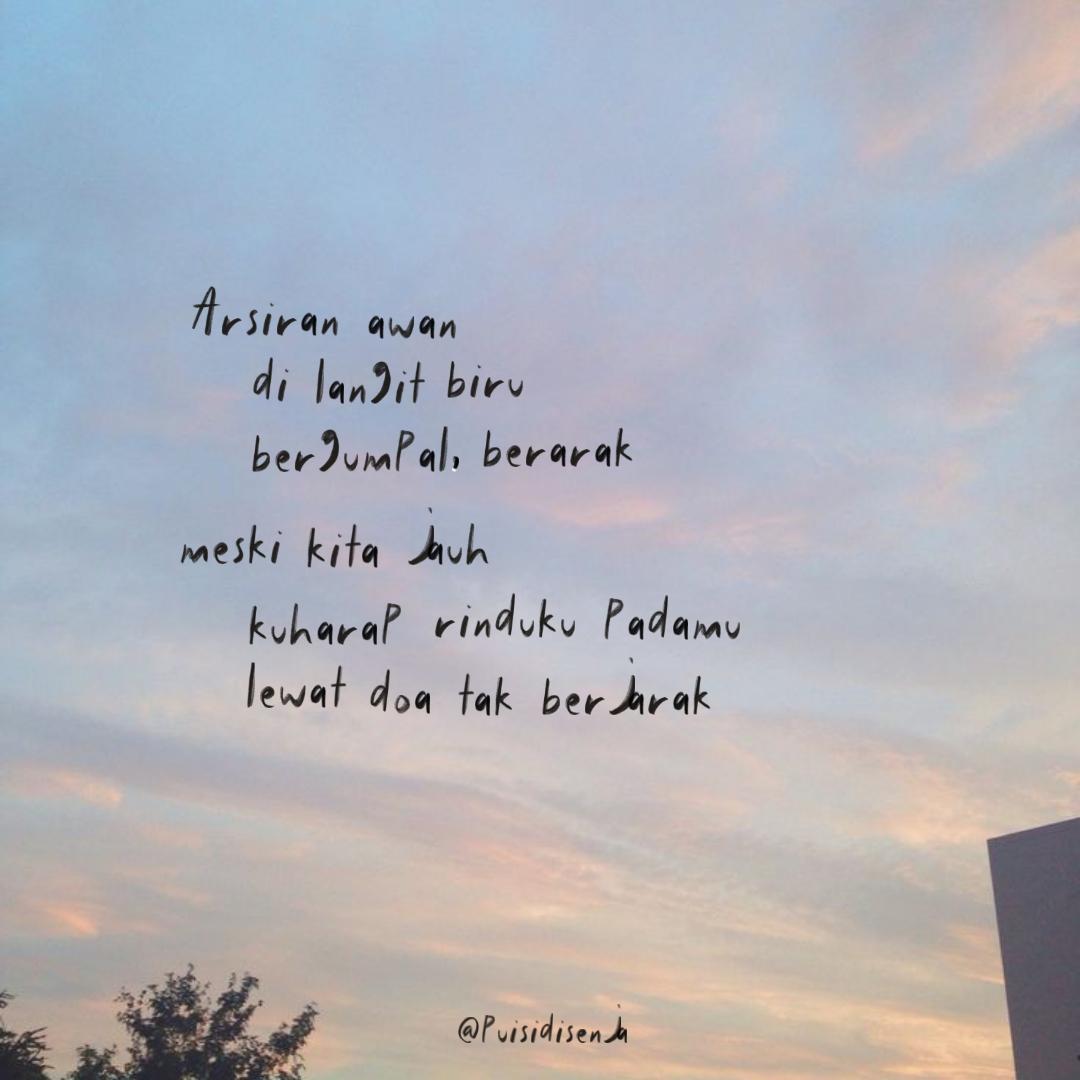 Arsiran awan
di langit biru
bergumpal, berarak
meski kita jauh
kuharap rinduku padamu
lewat doa tak berjarak
@Puisidisenja